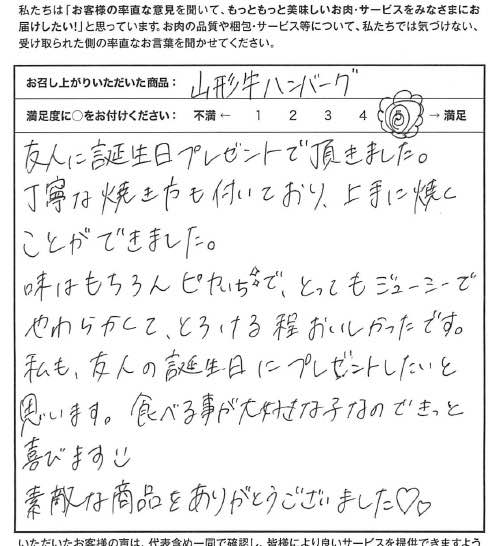 私たちは「お客様の率直な意見を聞いて、もっともっと美味しいお肉・サービスをみなさまにお
届けしたい!」と思っています。お肉の品質や梱包・サービス等について、私たちでは気づけない、
受け取られた側の率直なお言葉を聞かせてください。
お召し上がりいただいた商品: 山形牛ハンバーグ
満足度に○をお付けください: 不満 ← 1 2 3 4 5 → 満足
友人に誕生日プレゼントで頂きました。
丁寧な焼き方も付いており、上手に焼く
ことができました。
味はもちろんピカいち☆で、とってもジューシーで
やわらかくて、とろける程おいしかったです。
私も、友人の誕生日にプレゼントしたいと
思います。食べる事が大好きな子なのできっと
喜びます
素敵な商品をありがとうございました♡♡
いただいたお客様の声は、代表含め一同で確認し、皆様により良いサービスを提供できますよう